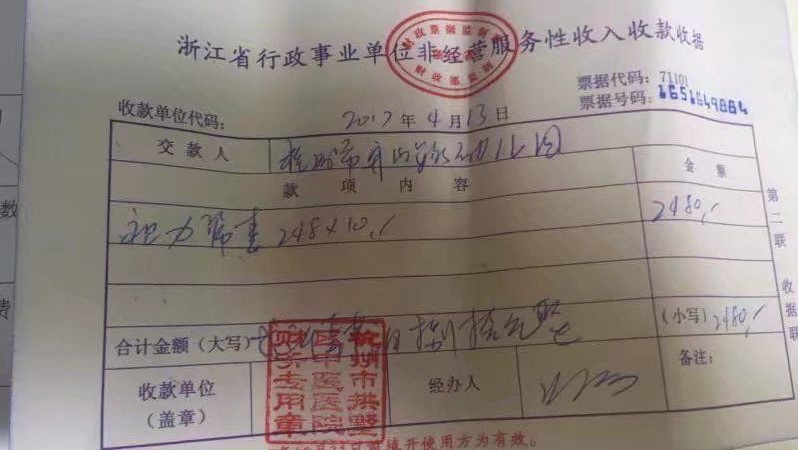 财政票据监制
财政部监制
浙江省行政事业单位非经营服务性收入收款收据
票据代码：71101
票据号码：1651649884
收款单位代码：
2017年4月13日
交款人
款项内容
金额
视力筛查 248×10,/
2480,/
合计金额（大写）
佰捌拾元整
（小写）2480,/
收款单位
（盖章）
杭州市拱墅
区中医医院
财务专用章
经办人
备注：
前填开使用方为有效。
第二联
收据联
数
费